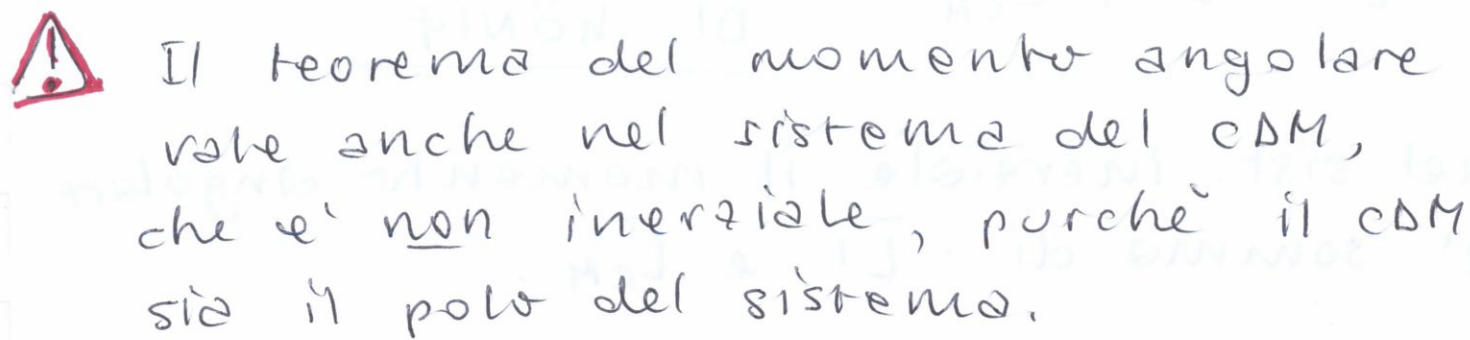 Il teorema del momento angolare
vale anche nel sistema del CDM,
che e' non inerziale, purchè il CDM
sia il polo del sistema.